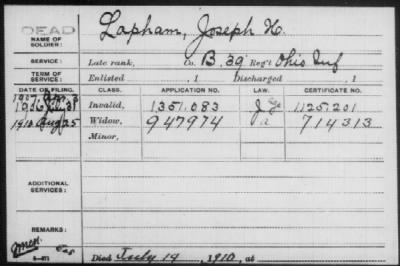 DEAD
NAME OF SOLDIER: Lapham, Joseph H.
SERVICE: Late rank, Co. B, 39 Reg't Ohio Inf
TERM OF SERVICE: Enlisted , 1 Discharged , 1
DATE OF FILING. CLASS. APPLICATION NO. LAW. CERTIFICATE NO.
1907
Invalid, 1351,083 1125201
1910 Aug 25 Widow, 947974 a 714313
Minor,
ADDITIONAL SERVICES:
REMARKS:
Died July 19, 1910, at